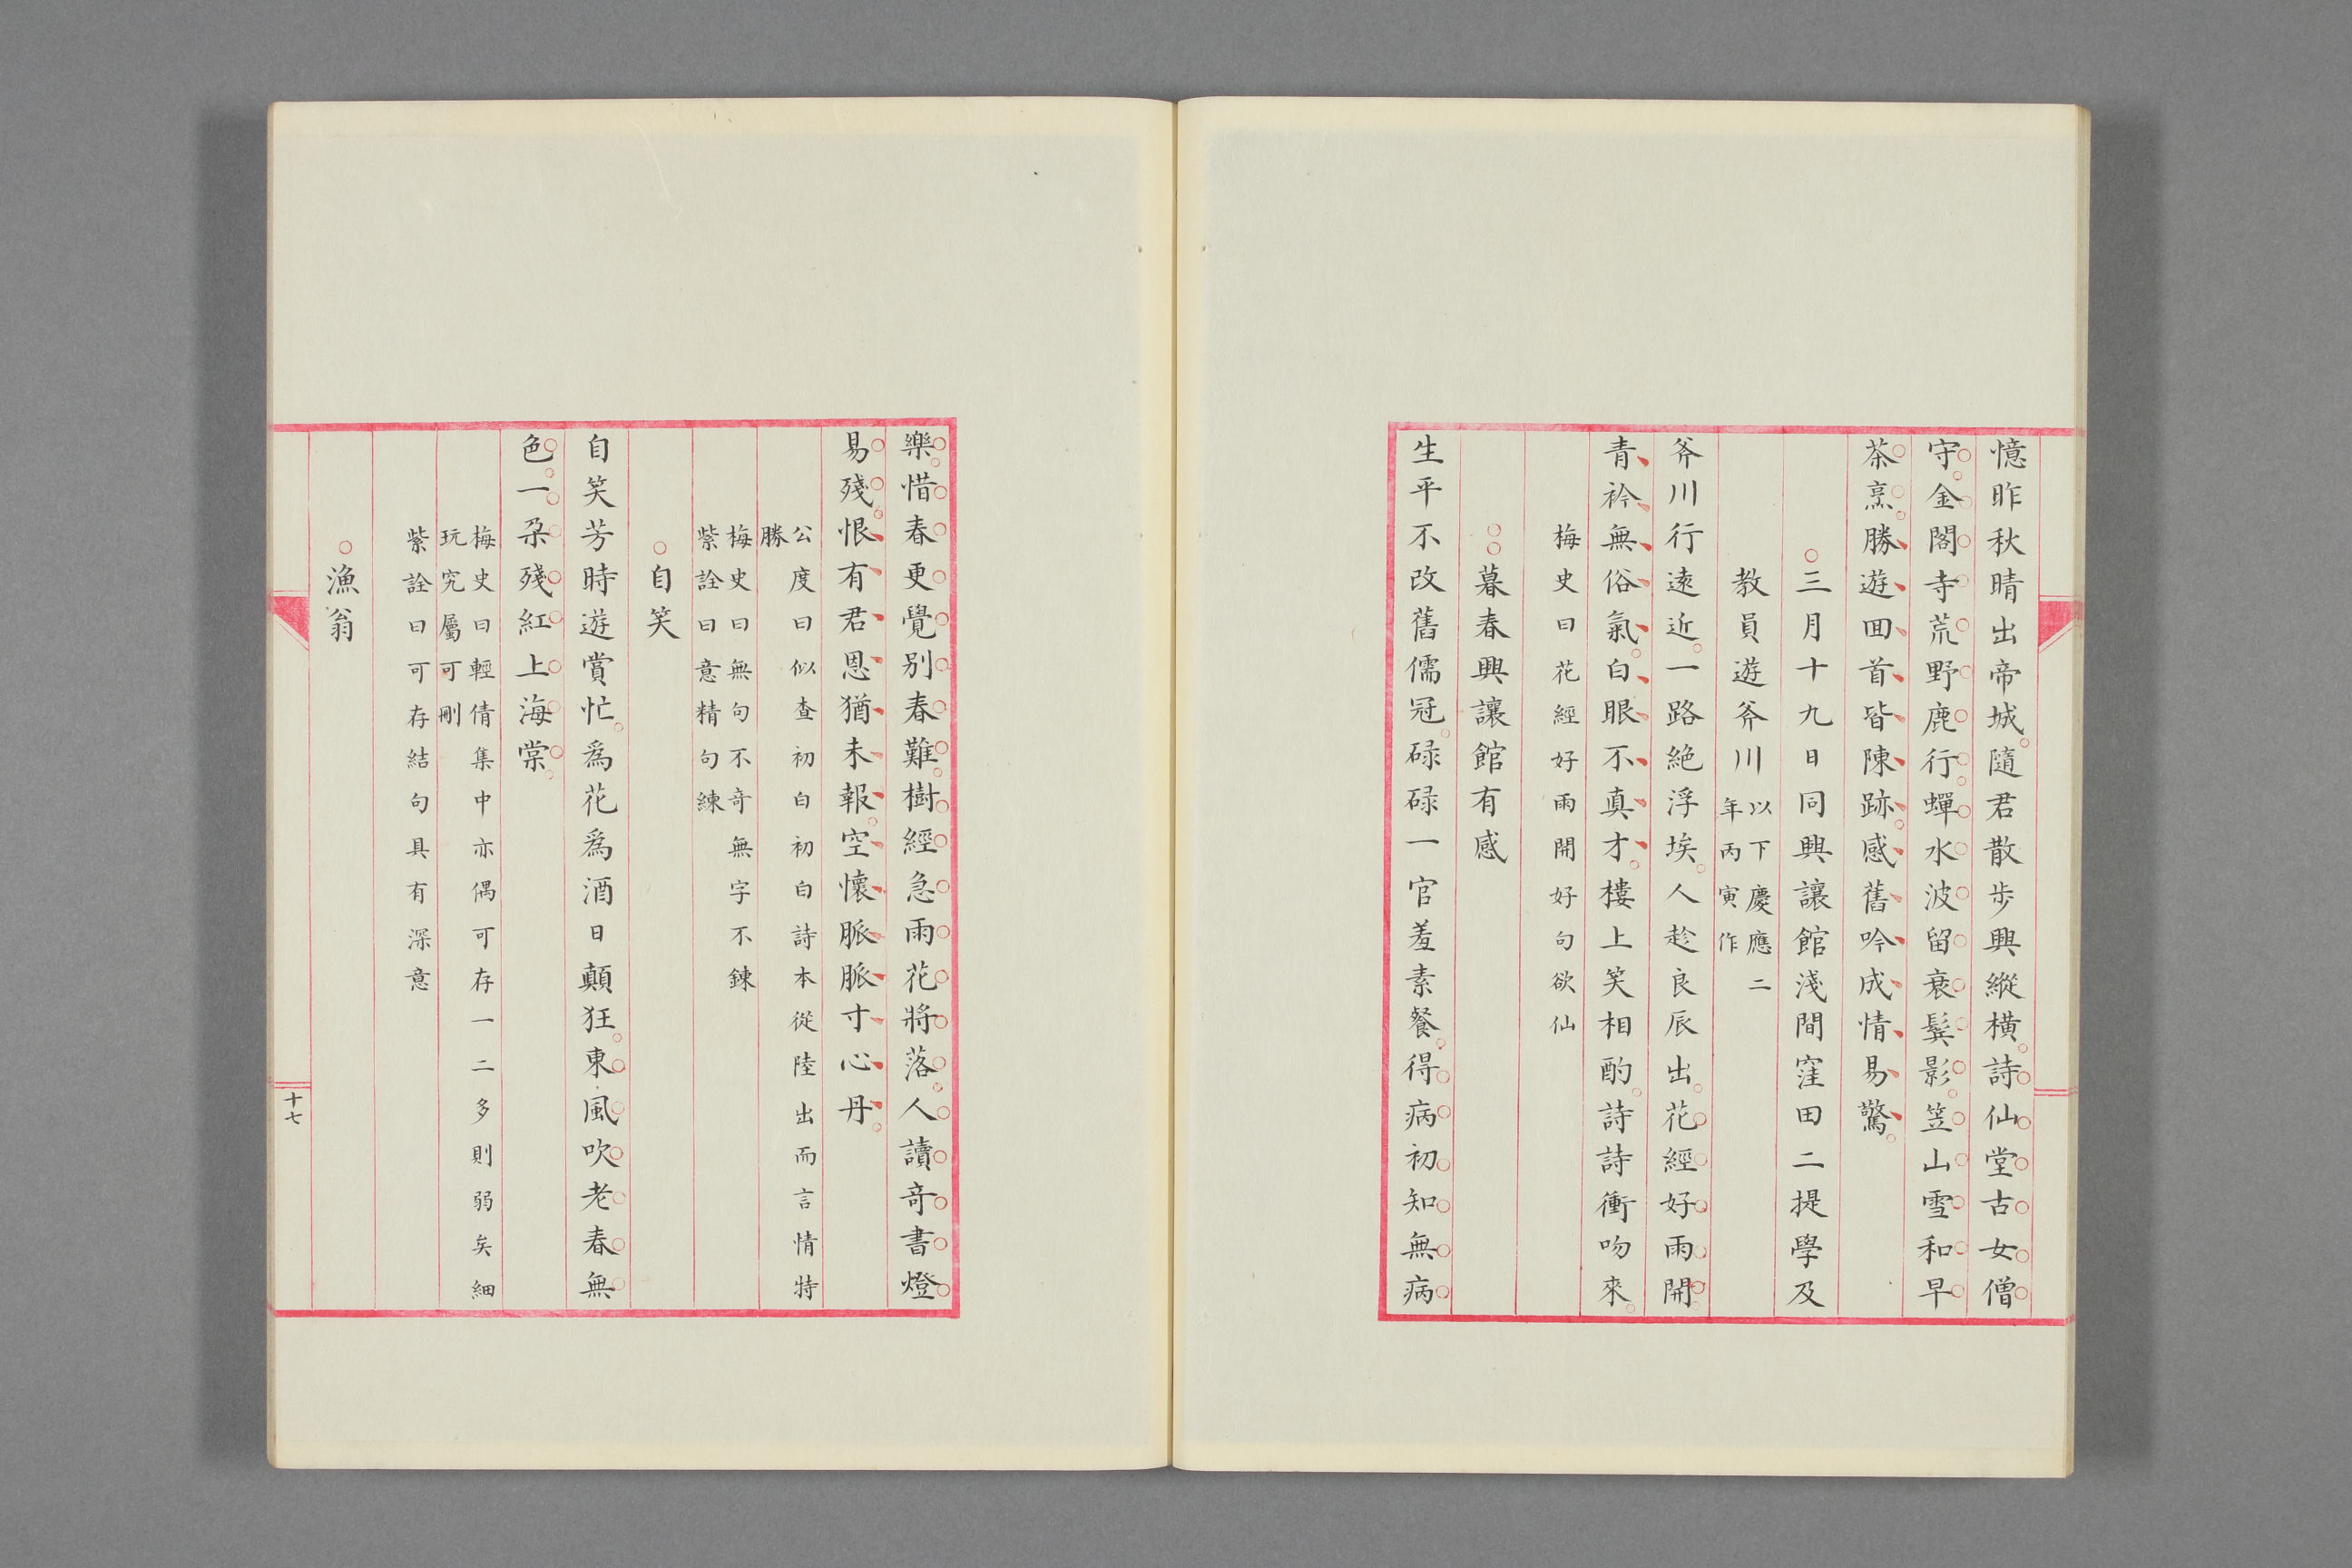 憶昨秋晴出帝城。隨君散歩興縱橫。詩仙堂古女僧
守。金閣寺荒野鹿行。蟬水波留衰鬂影。笠山雪和早
茶烹。勝遊回首皆陳跡。感舊吟成情易驚。
○三月十九日同興讓館淺間窪田二提學及
教員遊斧川 以下慶應二
年丙寅作
斧川行遠近。一路絶浮埃。人趁良辰出。花經好雨開。
青衿無俗氣。白眼不真才。樓上笑相酌。詩詩衝吻來。
梅史曰花經好雨開好句欲仙
○○暮春興讓館有感
生平不改舊儒冠。碌碌一官羞素餐。得病初知無病
樂。惜春更覺別春難。樹經急雨花將落。人讀奇書燈
易殘。恨有君恩猶未報。空懷脈脈寸心丹。
公度曰似查初白初白詩本從陸出而言情特
勝
梅史曰無句不奇無字不鍊
紫詮曰意精句練
○自笑
自笑芳時遊賞忙。爲花爲酒日顛狂。東風吹老春無
色。一朶殘紅上海棠。
梅史曰輕倩集中亦偶可存一二多則弱矣細
玩究屬可刪
紫詮曰可存結句具有深意
○漁翁
十七